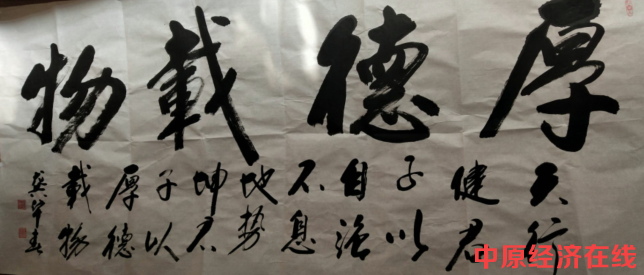 厚德載物
天行
健君
子以
自强
不息
地势
坤君
子以
厚德
載物
中原经济在线